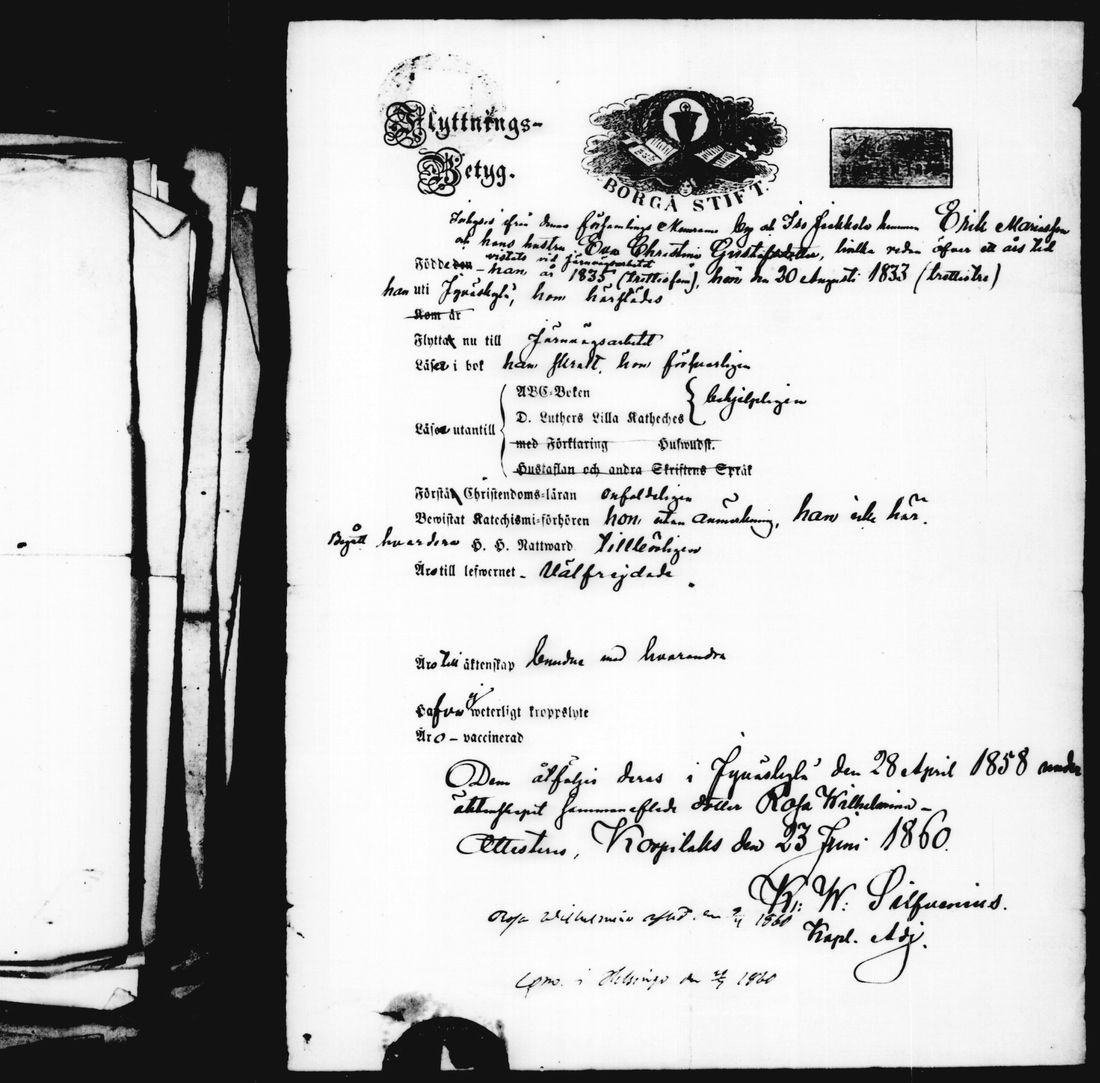 Flyttnings-
Betyg.
BORGÅ STIFT.
Inhyses ifrån denna församlings by och Erik Mariasson
och hans hustru Eva Christina Gustafsdotter, hvilka redan öfver ett års tid
vistats vid järnvägsarbetet
Födde den - han, år 1835 (trettiofem), hon den 20 Augusti 1833 (trettiotre)
han uti Jyväskylä, hon härstädes
Kom år
Flytta nu till Järnvägsarbetet
Läsa i bok han svagt, hon försvarligen
ABC-Boken
D. Luthers Lilla Katheches behjelpligen
Läsa utantill
med Förklaring Huswudst.
Hustaflan och andra Skriftens Språk
Förstå Christendoms-läran enfaldeligen
Bewistat Katechismi-förhören hon utan anmärkning, han icke här.
Begått hvardera H. H. Nattward tillbörligen
Äro till lefwernet - Välfrejdade
Äro till äktenskap bundna med hvarandra
Hafva ej weterligt kroppslyte
Äro - vaccinerad
Dem åtföljer deras i Jyväskylä den 28 April 1858 under
äktenskapet sammanaflade dotter Rosa Wilhelmina -
Attesteras, Korpilaks den 23 Juni 1860.
K: W: Silfvenius.
Kapl. Adj.
Rosa Wilhelmina den 1860
i Helsinge den 1860